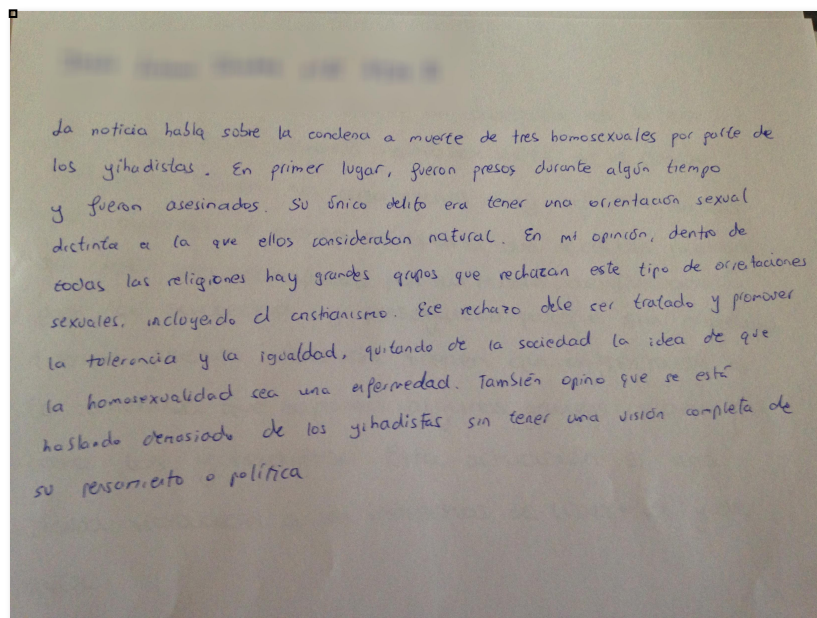 La noticia habla sobre la condena a muerte de tres homosexuales por parte de
los yihadistas. En primer lugar, fueron presos durante algún tiempo
y fueron asesinados. Su único delito era tener una orientación sexual
distinta a la que ellos consideraban natural. En mi opinión, dentro de
todas las religiones hay grandes grupos que rechazan este tipo de orientaciones
sexuales, incluyendo el cristianismo. Ese rechazo debe ser tratado y promover
la tolerancia y la igualdad, quitando de la sociedad la idea de que
la homosexualidad sea una enfermedad. También opino que se está
hablando demasiado de los yihadistas sin tener una visión completa de
su pensamiento o política